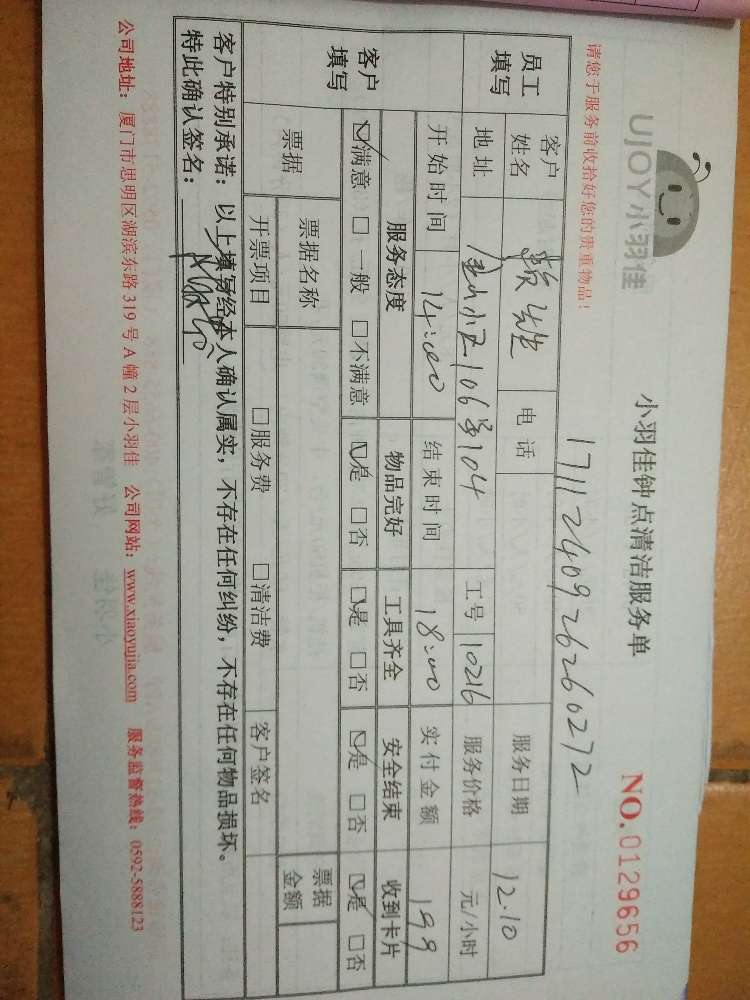 UJOY小羽佳
小羽佳钟点清洁服务单
NO.0129656
请您于服务前收拾好您的贵重物品!
1711240926260272
员工填写 客户姓名 先生 电话 服务日期 12.10
地址 金山小区106号104 工号 10216 服务价格 元/小时
开始时间 14:00 结束时间 18:00 实付金额 199
客户填写 服务态度 物品完好 工具齐全 安全结束 收到卡片
☑满意 □一般 □不满意 ☑是 □否 ☑是 □否 ☑是 □否 ☑是 □否
票据 票据名称 票据金额
开票项目 □服务费 □清洁费 客户签名
客户特别承诺:以上填写经本人确认属实,不存在任何纠纷,不存在任何物品损坏。
特此确认签名:
公司地址:厦门市思明区湖滨东路319号A幢2层小羽佳 公司网站:www.xiaoyujia.com 服务监督热线:0592-5888123